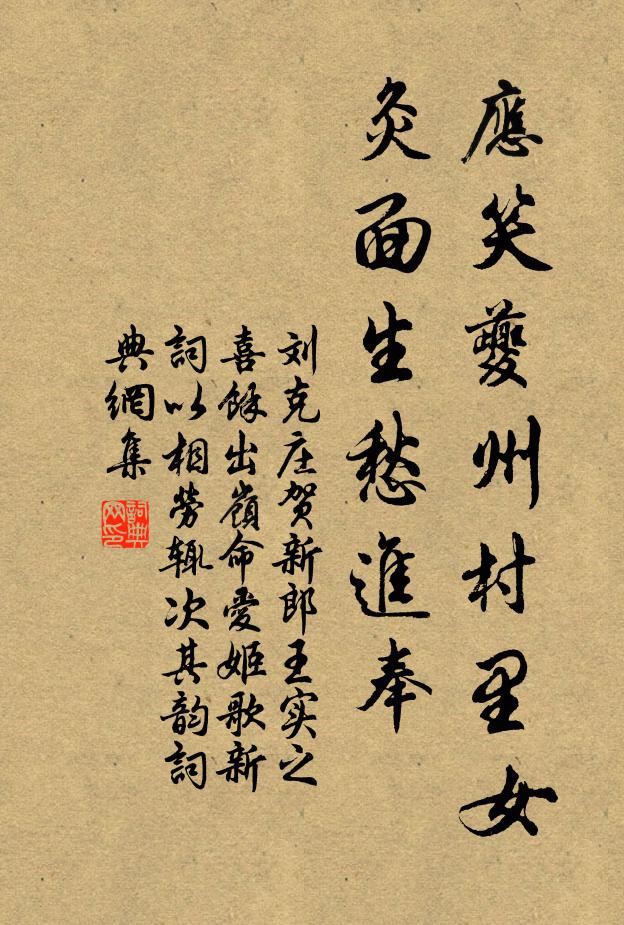 應笑夔州村里女
灸面生愁進奉
刘克庄贺新郎王实之
喜餘出嶺命愛姬歌新
詞以相勞辄次其韵詞
典網集
詞典
网印